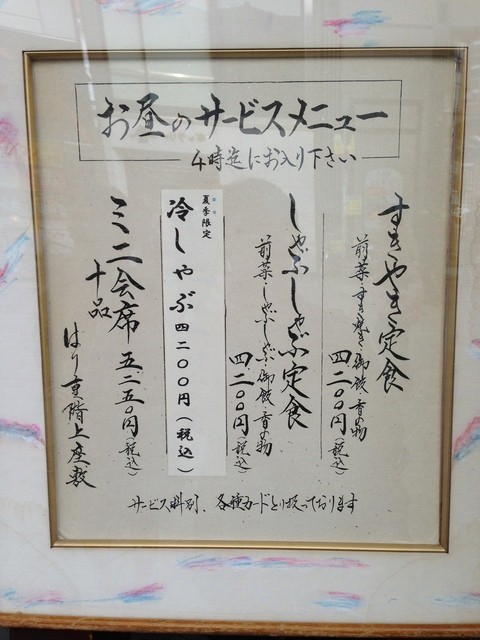 お昼のサービスメニュー
4時迄にお入り下さい
すきやき定食
前菜・すき焼き・御飯・香の物
四、二〇〇円(税込)
しゃぶしゃぶ定食
前菜・しゃぶしゃぶ・御飯・香の物
四、二〇〇円(税込)
夏季限定
冷しゃぶ 四二〇〇円(税込)
ミニ会席 五、二五〇円(税込)
十品
はり重階上座敷
サービス料別、各種カードとり扱っております